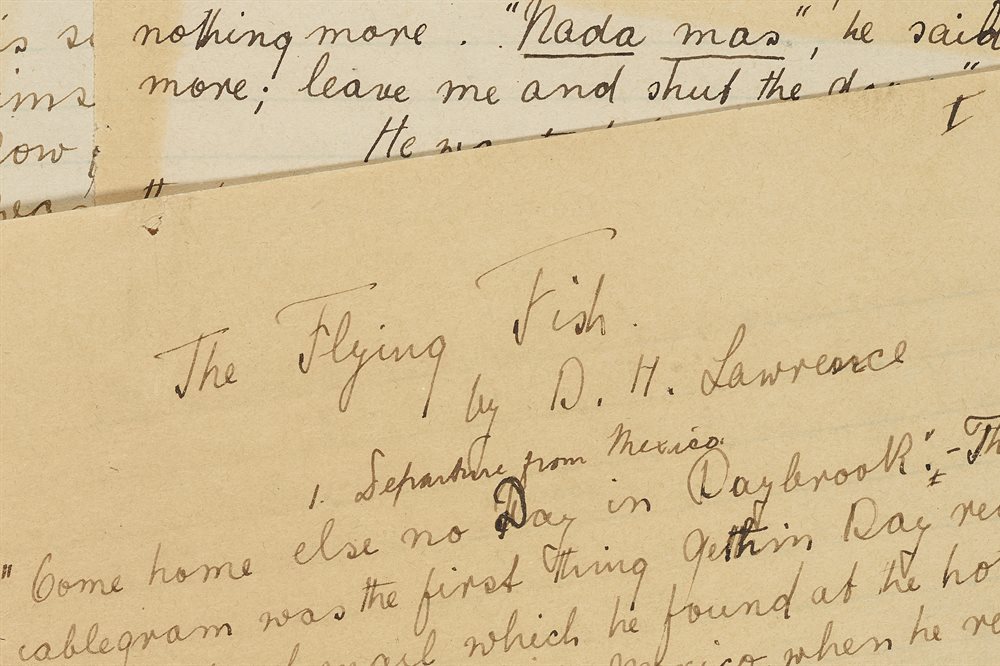 nothing more. "Nada mas", he said
more; leave me and shut the
He
low
I
The Flying Fish.
by D. H. Lawrence
1. Departure from Mexico.
"Come home else no Day in Daybrook." – Th
cablegram was the first thing Gethin Day re
which he found at the ho
when he re